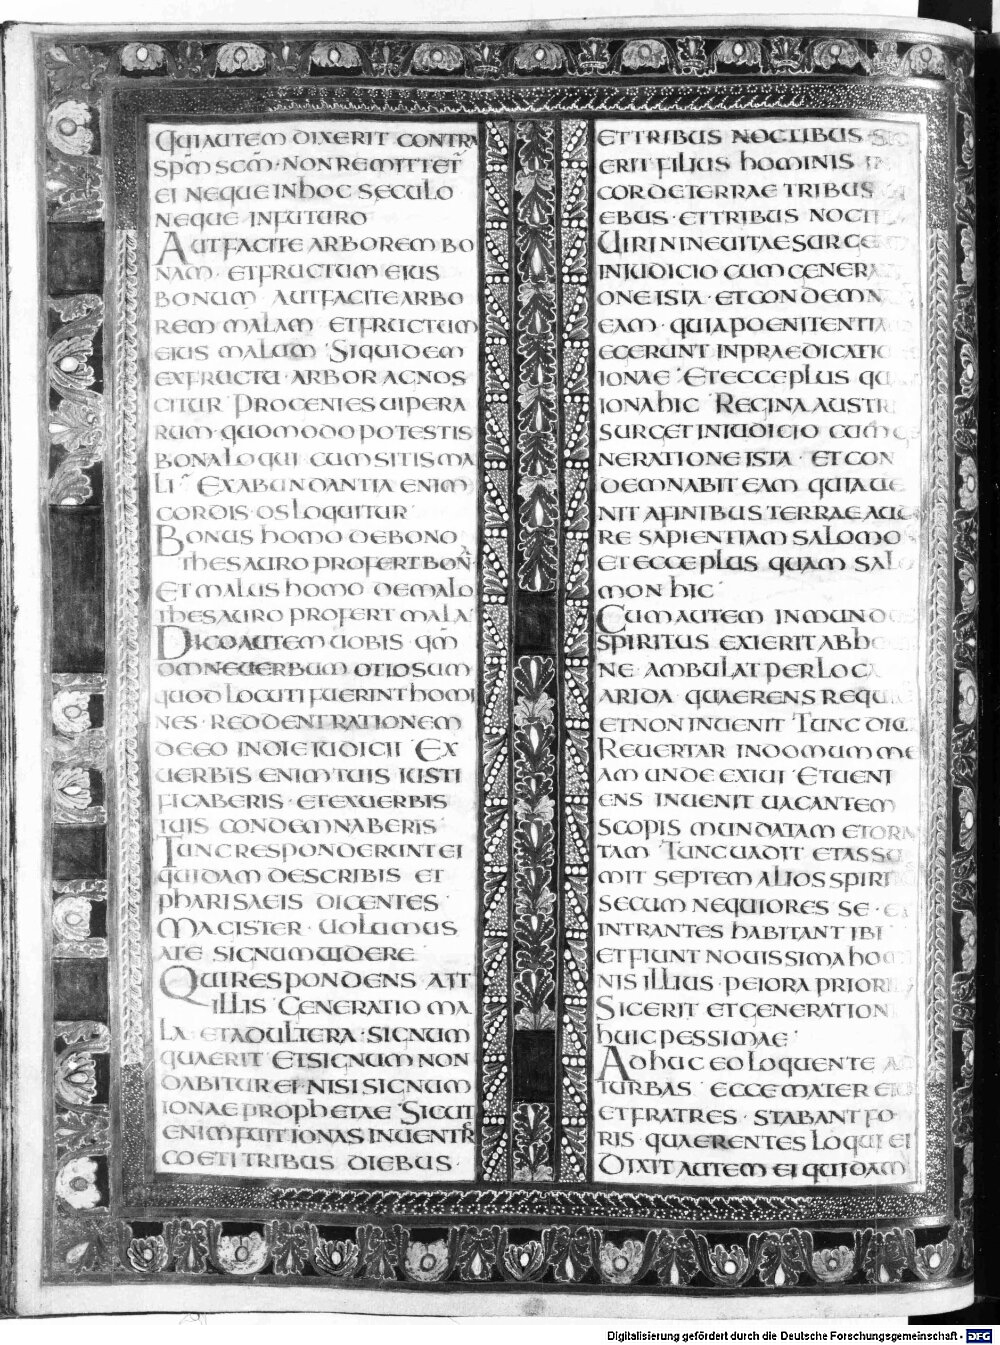 QUIAUTEM DIXERIT CONTRA
SPM SCM · NON REMITTET
EI NEQUE INHOC SECULO
NEQUE INFUTURO
AUTFACITE ARBOREM BO
NAM · ETFRUCTUM EIUS
BONUM AUTFACITE ARBO
REM MALAM ETFRUCTUM
EIUS MALUM · SIQUIDEM
EXFRUCTU · ARBOR AGNOS
CITUR PROGENIES UIPERA
RUM · QUOMODO POTESTIS
BONA LOQUI CUM SITIS MA
LI EXABUNDANTIA ENIM
CORDIS · OS LOQUITUR
BONUS HOMO DEBONO
THESAURO PROFERT BON
ET MALUS HOMO DEMALO
THESAURO PROFERT MALA
DICOAUTEM UOBIS QM
OMNEUERBUM OTIOSUM
QUOD LOCUTI FUERINT HOMI
NES · REDDENT RATIONEM
DEEO INDIE IUDICII EX
UERBIS ENIM TUIS IUSTI
FICABERIS · ETEXUERBIS
TUIS CONDEMNABERIS
TUNC RESPONDERUNT EI
QUIDAM DESCRIBIS ET
PHARISAEIS DICENTES ·
MAGISTER · UOLUMUS
ATE SIGNUM UIDERE
QUI RESPONDENS AIT
ILLIS GENERATIO MA
LA ETADULTERA · SIGNUM
QUAERIT ETSIGNUM NON
DABITUR EI · NISI SIGNUM
IONAE PROPHETAE SICUT
ENIM FUIT IONAS INUENTR
COETI TRIBUS DIEBUS ·
ETTRIBUS NOCTIBUS
ERIT FILIUS HOMINIS
CORDE TERRAE TRIBUS
EBUS · ETTRIBUS
UIRI NINEUITAE
INIUDICIO CUM
ONE ISTA · ET
EAM · QUIA
ECERUNT IN
IONAE · ET ECCE PLUS
IONA HIC REGINA
SURGET INIUDICIO CUM
NERATIONE ISTA · ET CON
DEMNABIT EAM QUIA UE
NIT AFINIBUS TERRAE AUDI
RE SAPIENTIAM SALOMO
ET ECCE PLUS QUAM SALO
MON HIC
CUM AUTEM
SPIRITUS EXIERIT
NE AMBULAT PER
ARIDA QUAERENS
ETNON INUENIT TUNC
REUERTAR INDOMUM ME
AM UNDE EXIUI ETUENI
ENS INUENIT UACANTEM
SCOPIS MUNDATAM
TAM TUNC UADIT
MIT SEPTEM ALIOS
SECUM NEQUIORES SE ·
INTRANTES HABITANT IBI
ETFIUNT NOUISSIMA
NIS ILLIUS · PEIORA
SICERIT ETGENERATIONI
HUIC PESSIMAE
ADHUC EO LOQUENTE
TURBAS ECCE MATER
ETFRATRES · STABANT FO
RIS · QUAERENTES LOQUI EI
DIXIT AUTEM EI QUIDAM
Digitalisierung gefördert durch die Deutsche Forschungsgemeinschaft - DFG